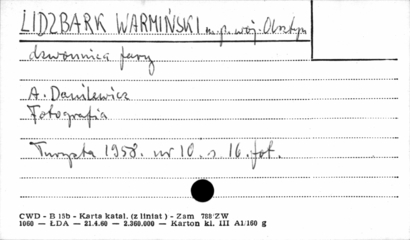 LIDZBARK WARMIŃSKI m.p. woj. Olsztyn
dzwonnica fary
A. Danilewicz
Fotografia
Turysta 1958. nr 10. s 16. fot.
CWD - B 15b - Karta katal. (z liniat) - Zam 788/ZW
1060 — ŁDA — 21.4.60 — 2.360.000 — Karton kl. III A1/160 g